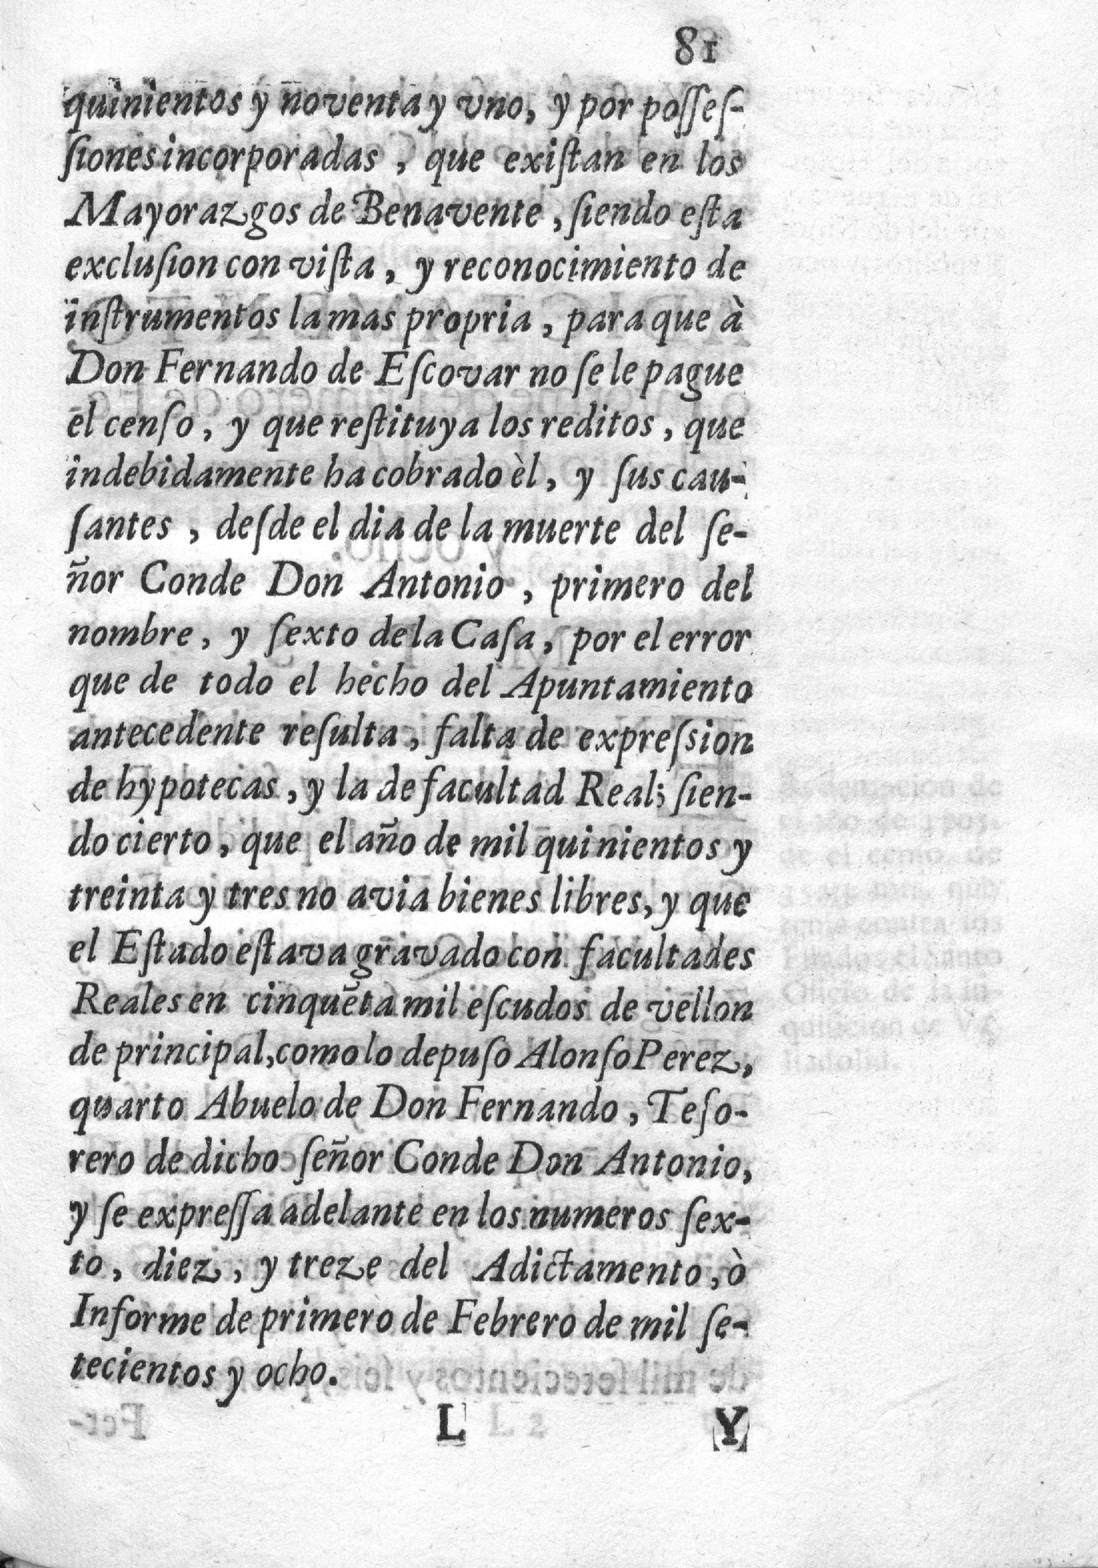 81
quinientos y noventa y vno, y por poſſeſ-
ſiones incorporadas, que exiſtan en los
Mayorazgos de Benavente, ſiendo eſta
excluſion con viſta, y reconocimiento de
inſtrumentos la mas propria, para que à
Don Fernando de Eſcovar no ſe le pague
el cenſo, y que reſtituya los reditos, que
indebidamente ha cobrado èl, y ſus cau-
ſantes, deſde el dia de la muerte del ſe-
ñor Conde Don Antonio, primero del
nombre, y ſexto de la Caſa, por el error
que de todo el hecho del Apuntamiento
antecedente reſulta, falta de expreſsion
de hypotecas, y la de facultad Real; ſien-
do cierto, que el año de mil quinientos y
treinta y tres no avia bienes libres, y que
el Eſtado eſtava gravado con facultades
Reales en cinquẽta mil eſcudos de vellon
de principal, como lo depuſo Alonſo Perez,
quarto Abuelo de Don Fernando, Teſo-
rero de dicho ſeñor Conde Don Antonio,
y ſe expreſſa adelante en los numeros ſex-
to, diez, y treze del Adictamento, ò
Informe de primero de Febrero de mil ſe-
tecientos y ocho.
L Y